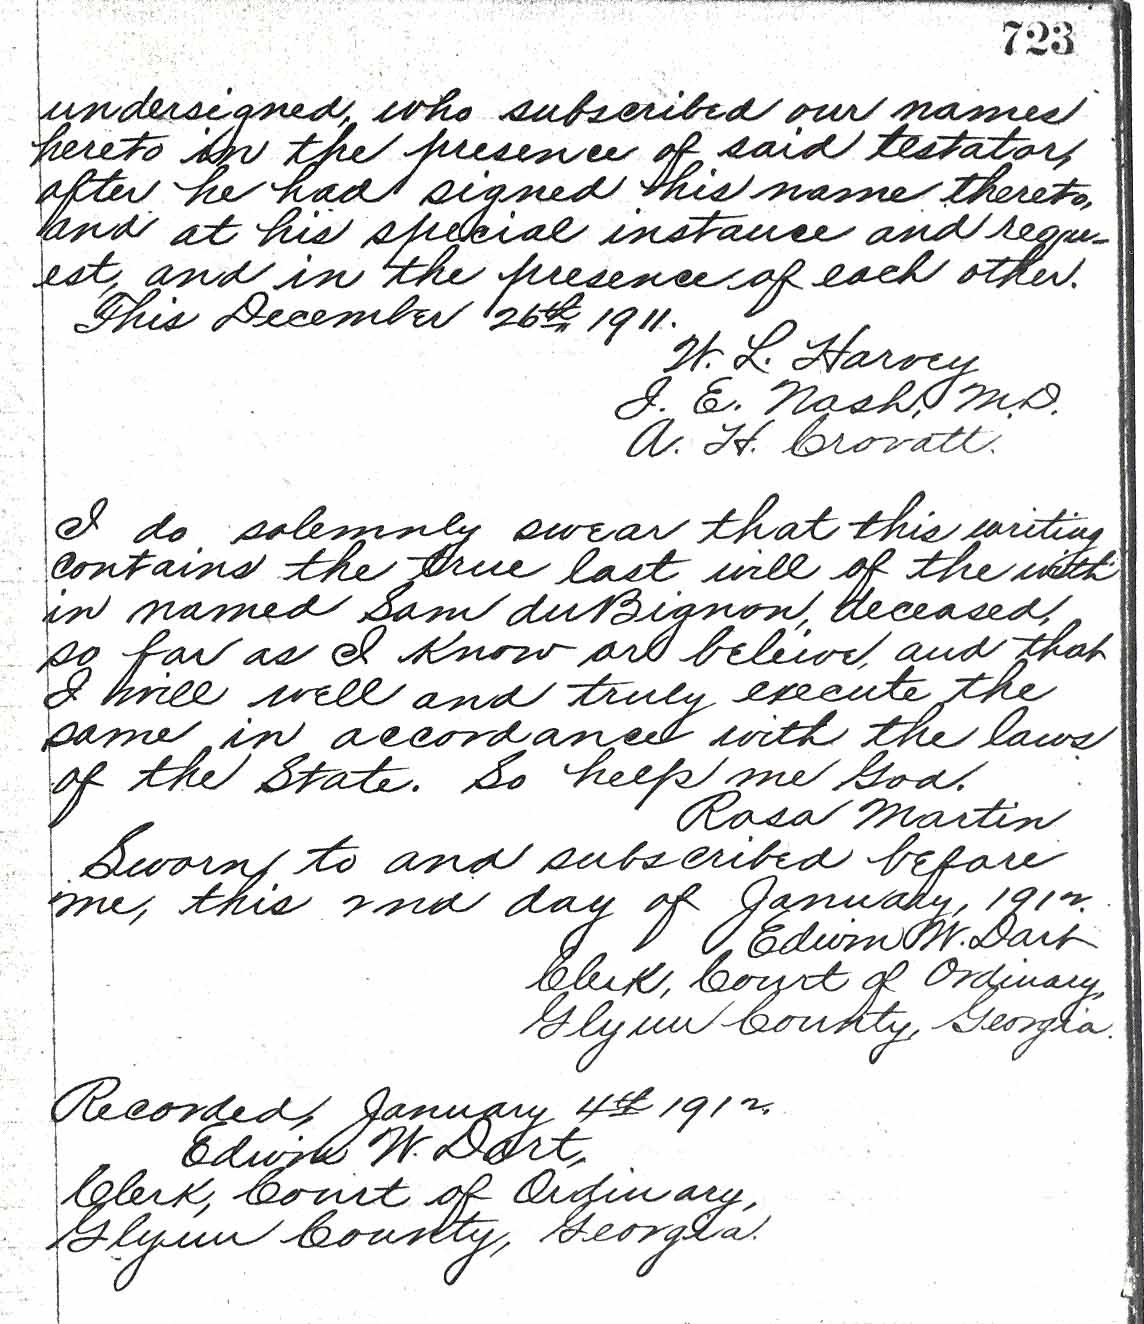 723
undersigned, who subscribed our names
hereto in the presence of said testator,
after he had signed his name thereto,
and at his special instance and requ-
est, and in the presence of each other.
This December 26th, 1911.
W. L. Harvey
J. E. Nash, M.D.
A. H. Crovatt.
I do solemnly swear that this writing
contains the true last will of the with
in named Sam duBignon, deceased,
so far as I know or beleive, and that
I will well and truly execute the
same in accordance with the laws
of the State. So help me God.
Rosa Martin
Sworn to and subscribed before
me, this 2nd day of January, 1912.
Edwin W. Dart
Clerk, Court of Ordinary,
Glynn County, Georgia.
Recorded, January 4th 1912.
Edwin W. Dart,
Clerk, Court of Ordinary,
Glynn County, Georgia.